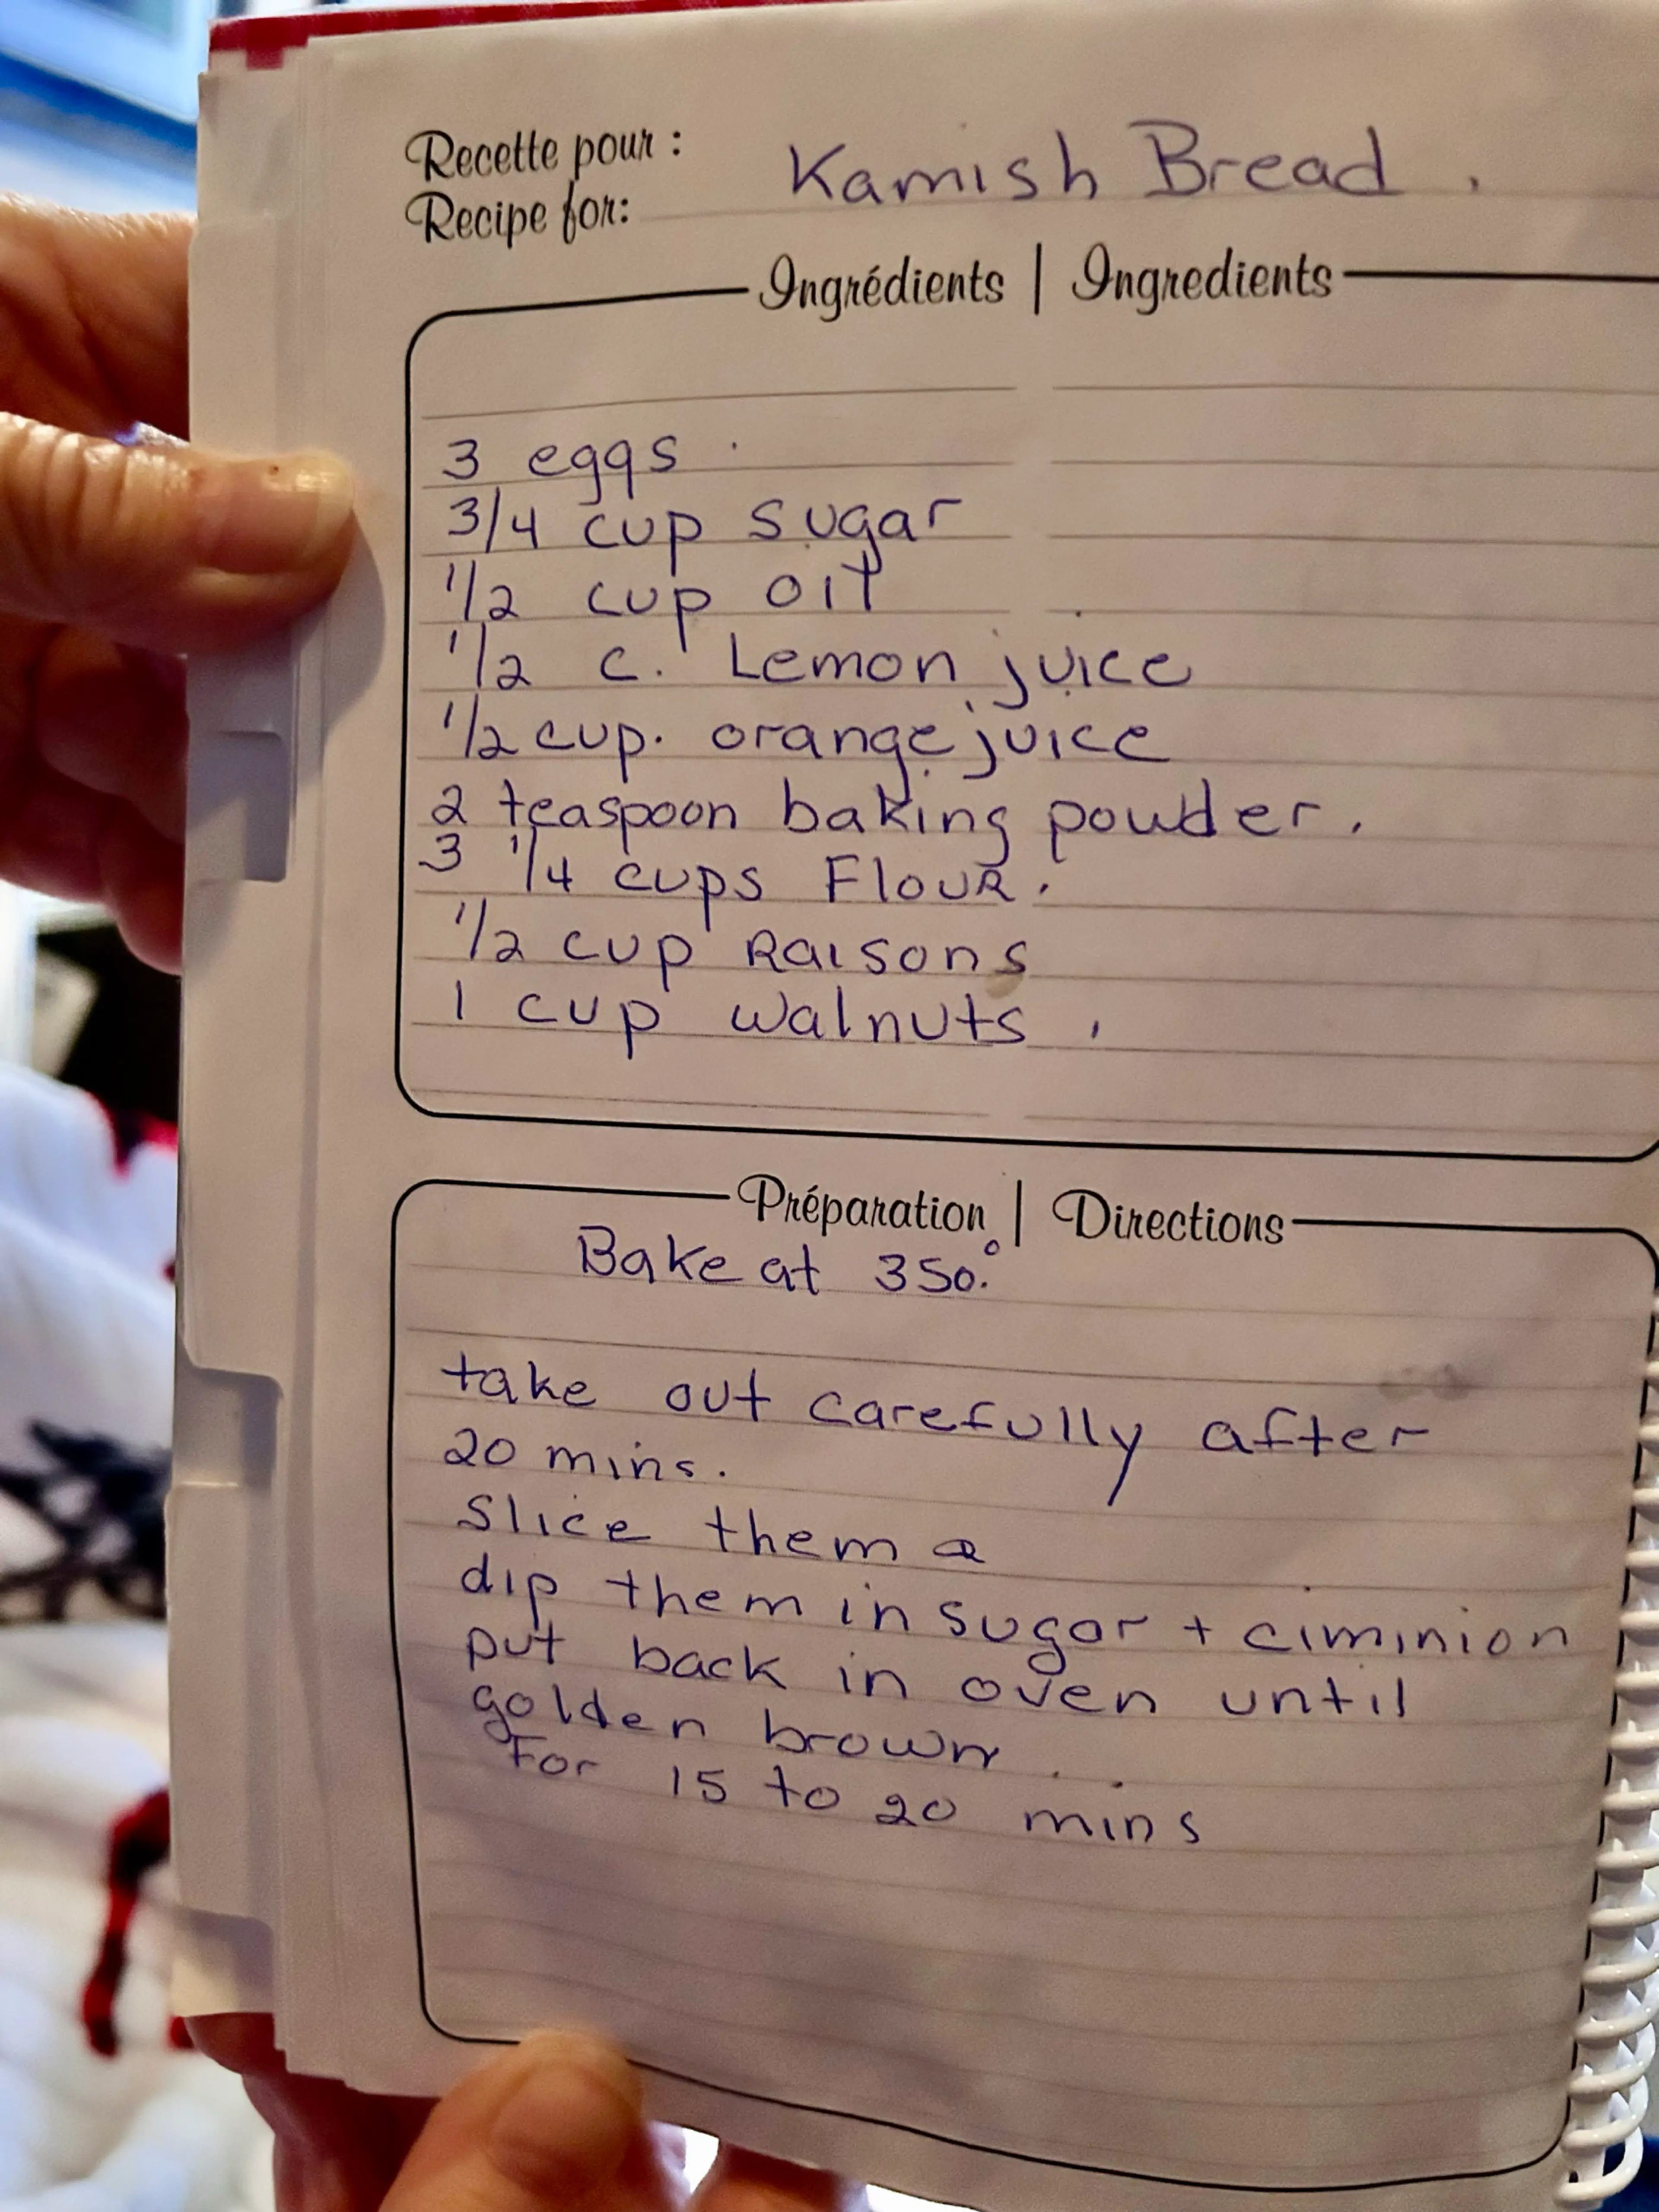 Recette pour :
Recipe for:
Kamish Bread.
Ingrédients | Ingredients
3 eggs
3/4 cup sugar
1/2 cup oil
1/2 c. Lemon juice
1/2 cup. orange juice
2 teaspoon baking powder.
3 1/4 cups Flour.
1/2 cup Raisons
1 cup walnuts,
Préparation | Directions
Bake at 350.°
take out carefully after
20 mins.
slice them &
dip them in sugar + ciminion
put back in oven until
golden brown.
For 15 to 20 mins